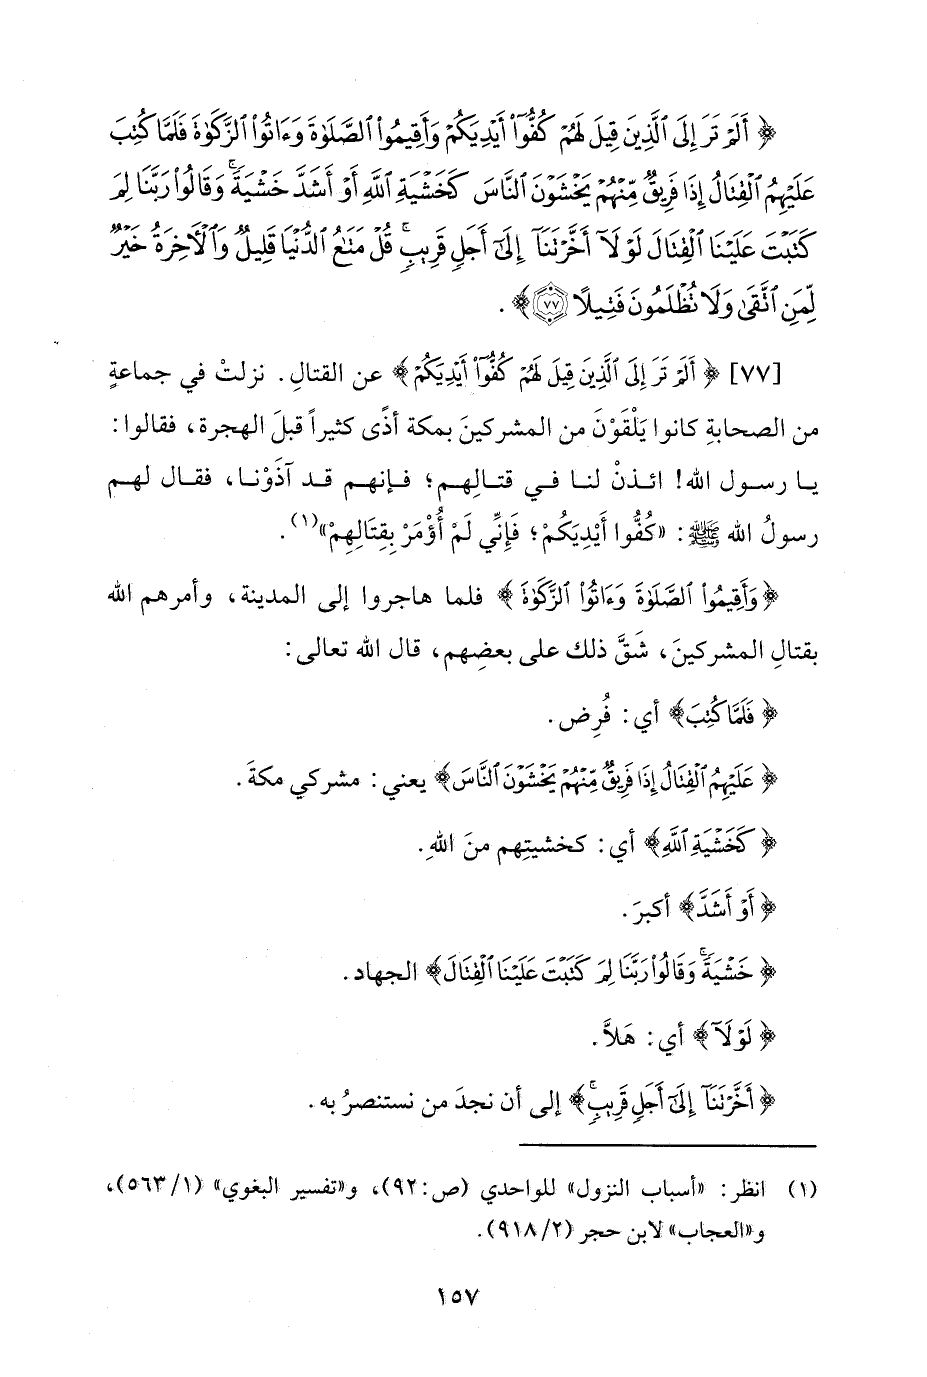 ﴿ أَلَمْ تَرَ إِلَى ٱلَّذِينَ قِيلَ لَهُمْ كُفُّوٓا۟ أَيْدِيَكُمْ وَأَقِيمُوا۟ ٱلصَّلَوٰةَ وَءَاتُوا۟ ٱلزَّكَوٰةَ فَلَمَّا كُتِبَ
عَلَيْهِمُ ٱلْقِتَالُ إِذَا فَرِيقٌ مِّنْهُمْ يَخْشَوْنَ ٱلنَّاسَ كَخَشْيَةِ ٱللَّهِ أَوْ أَشَدَّ خَشْيَةً ۚ وَقَالُوا۟ رَبَّنَا لِمَ
كَتَبْتَ عَلَيْنَا ٱلْقِتَالَ لَوْلَآ أَخَّرْتَنَآ إِلَىٰٓ أَجَلٍ قَرِيبٍ ۗ قُلْ مَتَـٰعُ ٱلدُّنْيَا قَلِيلٌ وَٱلْـَٔاخِرَةُ خَيْرٌ
لِّمَنِ ٱتَّقَىٰ وَلَا تُظْلَمُونَ فَتِيلًا ٧٧ ﴾ .
[٧٧] ﴿ أَلَمْ تَرَ إِلَى ٱلَّذِينَ قِيلَ لَهُمْ كُفُّوٓا۟ أَيْدِيَكُمْ ﴾ عن القتالِ. نزلتْ في جماعةٍ
من الصحابةِ كانوا يَلْقَوْنَ من المشركينَ بمكة أذًى كثيراً قبلَ الهجرة، فقالوا:
يا رسول الله! ائذنْ لنا في قتالِهم؛ فإنهم قد آذَوْنا، فقال لهم
رسولُ الله ﷺ: «كُفُّوا أَيْدِيَكُمْ؛ فَإِنِّي لَمْ أُؤْمَرْ بِقِتَالِهِمْ»(١).
﴿ وَأَقِيمُوا۟ ٱلصَّلَوٰةَ وَءَاتُوا۟ ٱلزَّكَوٰةَ ﴾ فلما هاجروا إلى المدينة، وأمرهم الله
بقتالِ المشركينَ، شَقَّ ذلك على بعضِهم، قال الله تعالى:
﴿ فَلَمَّا كُتِبَ ﴾ أي: فُرِض.
﴿ عَلَيْهِمُ ٱلْقِتَالُ إِذَا فَرِيقٌ مِّنْهُمْ يَخْشَوْنَ ٱلنَّاسَ ﴾ يعني: مشركي مكةَ.
﴿ كَخَشْيَةِ ٱللَّهِ ﴾ أي: كخشيتِهم منَ اللهِ.
﴿ أَوْ أَشَدَّ ﴾ أكبرَ.
﴿ خَشْيَةً ۚ وَقَالُوا۟ رَبَّنَا لِمَ كَتَبْتَ عَلَيْنَا ٱلْقِتَالَ ﴾ الجهاد.
﴿ لَوْلَآ ﴾ أي: هَلاَّ.
﴿ أَخَّرْتَنَآ إِلَىٰٓ أَجَلٍ قَرِيبٍ ۗ ﴾ إلى أن نجدَ من نستنصرُ به.
(١) انظر: «أسباب النزول» للواحدي (ص: ٩٢)، و«تفسير البغوي» (١/ ٥٦٣)،
و«العجاب» لابن حجر (٢/ ٩١٨).
١٥٧